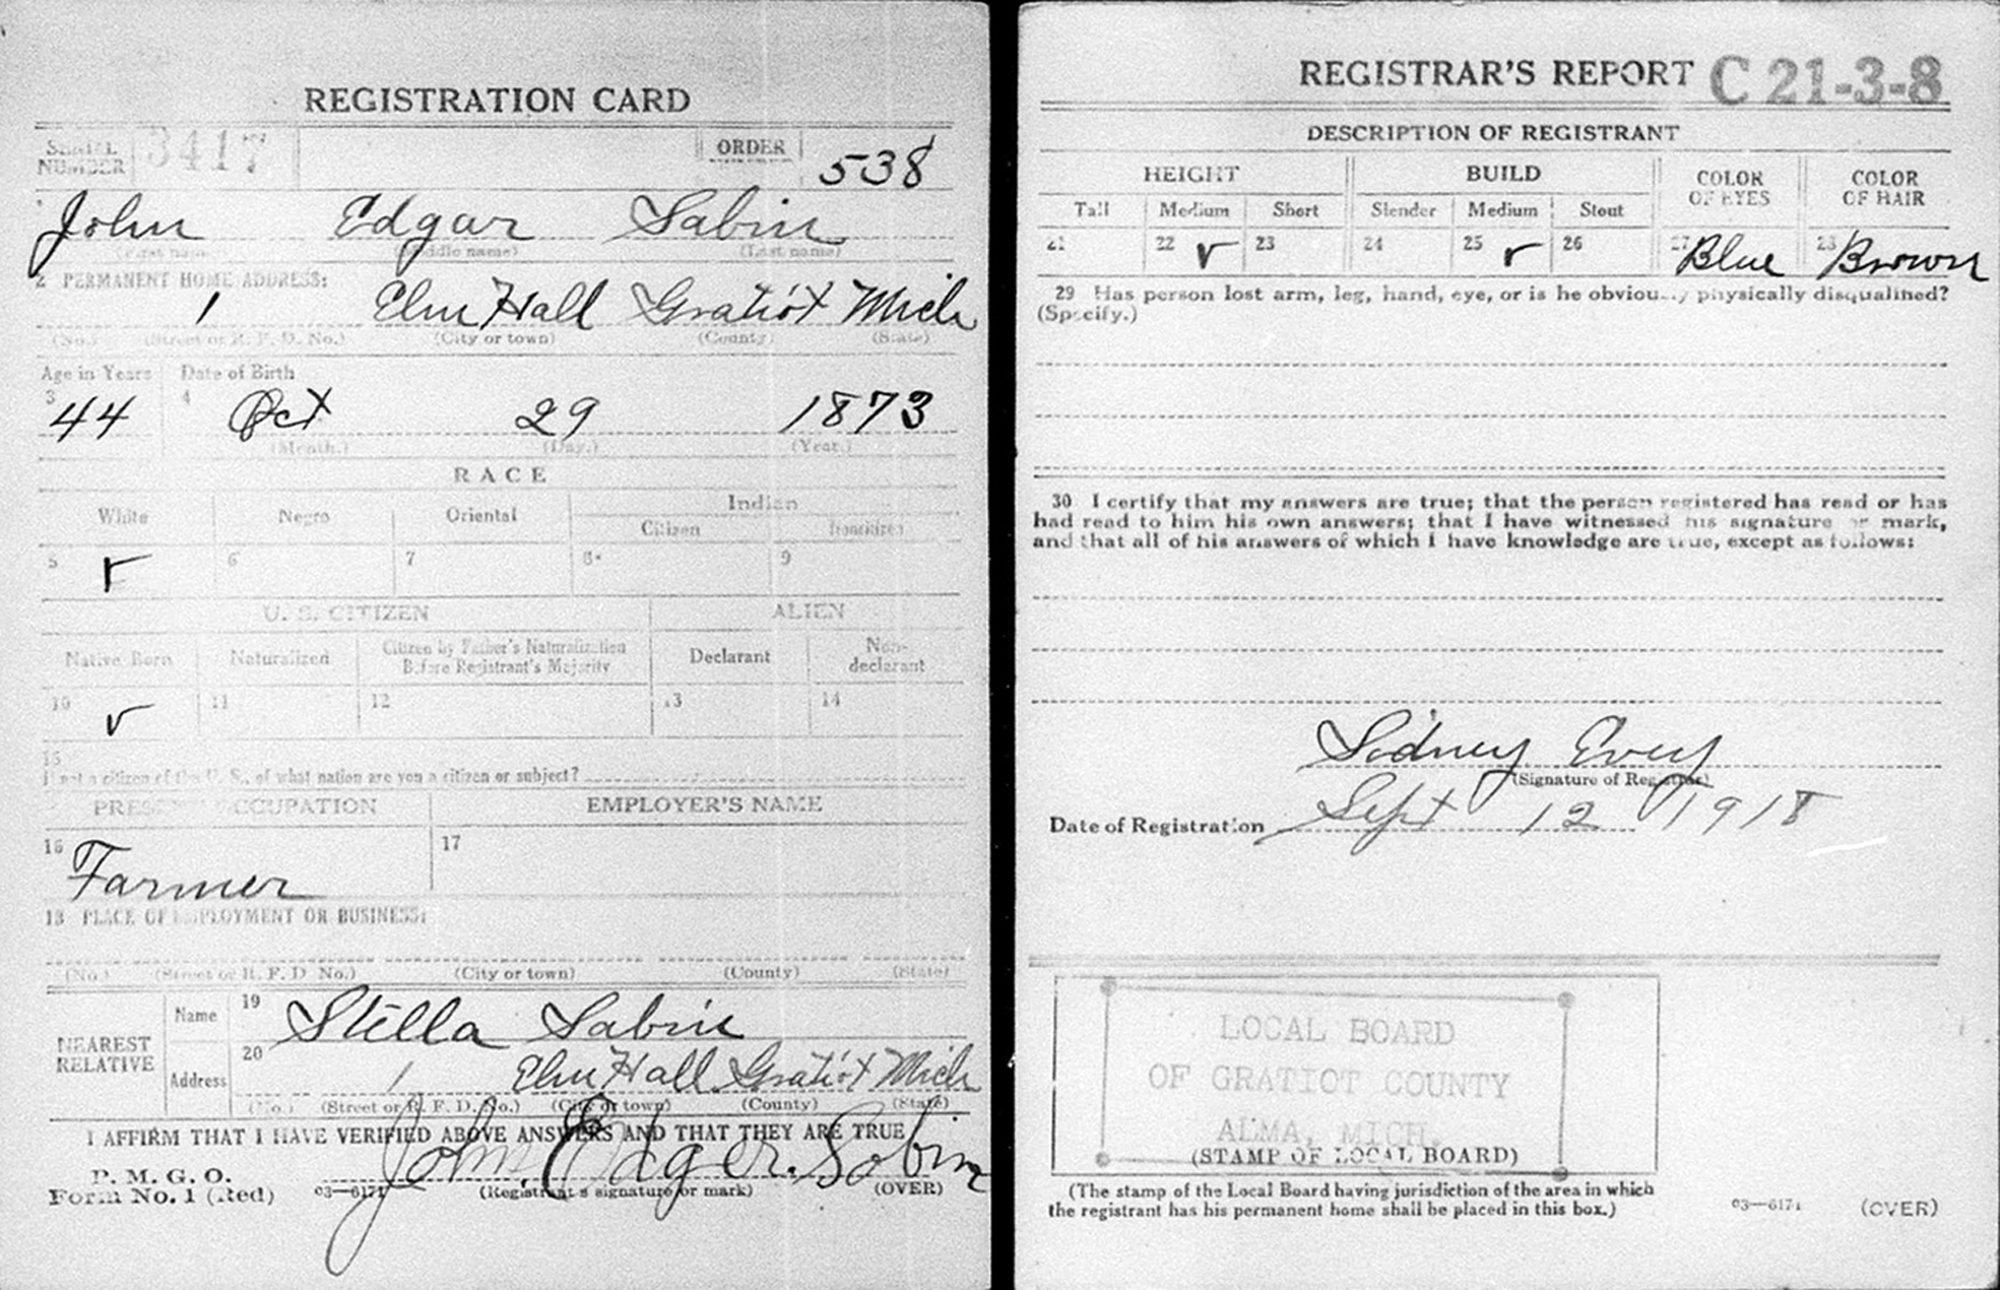 REGISTRATION CARD
SERIAL NUMBER 3417 ORDER 538
John Edgar Sabin
(First name) (Middle name) (Last name)
2 PERMANENT HOME ADDRESS:
1 Elm Hall Gratiot Mich
(No.) (Street or R. F. D. No.) (City or town) (County) (State)
Age in Years Date of Birth
3 44 4 Oct 29 1873
(Month.) (Day.) (Year.)
RACE
White Negro Oriental Indian
Citizen Noncitizen
5 ✓ 6 7 8 9
U. S. CITIZEN ALIEN
Native Born Naturalized Citizen by Father's Naturalization Before Registrant's Majority Declarant Non-declarant
10 ✓ 11 12 13 14
15
If not a citizen of the U. S., of what nation are you a citizen or subject?
PRESENT OCCUPATION EMPLOYER'S NAME
16 Farmer 17
18 PLACE OF EMPLOYMENT OR BUSINESS:
(No.) (Street or R. F. D. No.) (City or town) (County) (State)
NEAREST RELATIVE Name 19 Stella Sabin
Address 20 1 Elm Hall Gratiot Mich
(No.) (Street or R. F. D. No.) (City or town) (County) (State)
I AFFIRM THAT I HAVE VERIFIED ABOVE ANSWERS AND THAT THEY ARE TRUE
P. M. G. O.
Form No. 1 (Red) 03—6171 John Edger. Sobin
(Registrant's signature or mark) (OVER)
REGISTRAR'S REPORT C 21-3-8
DESCRIPTION OF REGISTRANT
HEIGHT BUILD COLOR OF EYES COLOR OF HAIR
Tall Medium Short Slender Medium Stout
21 22 ✓ 23 24 25 ✓ 26 27 Blue 28 Brown
29 Has person lost arm, leg, hand, eye, or is he obviously physically disqualified?
(Specify.)
30 I certify that my answers are true; that the person registered has read or has
had read to him his own answers; that I have witnessed his signature or mark,
and that all of his answers of which I have knowledge are true, except as follows:
Sidney Evey
(Signature of Registrar)
Date of Registration Sept 12 1918
LOCAL BOARD
OF GRATIOT COUNTY
ALMA, MICH.
(STAMP OF LOCAL BOARD)
(The stamp of the Local Board having jurisdiction of the area in which
the registrant has his permanent home shall be placed in this box.)
03—6171 (OVER)